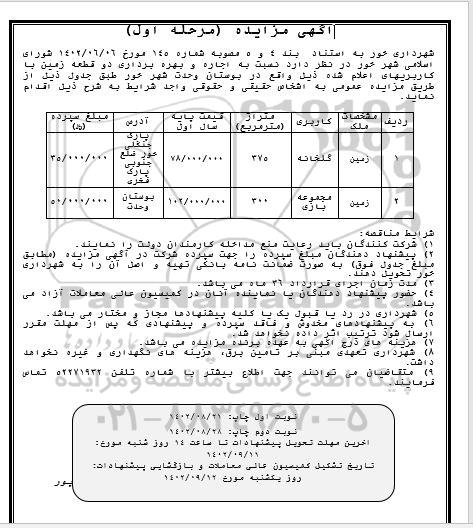 آگهی مزایده (مرحله اول)
شهرداری خور به استناد بند ٤ و ٥ مصوبه شماره ١٤٥ مورخ ١٤٠٢/٠٦/٠٦ شورای
اسلامی شهر خور در نظر دارد نسبت به اجاره و بهره برداری دو قطعه زمین با
کاربریهای اعلام شده ذیل واقع در بوستان وحدت شهر خور طبق جدول ذیل از
طریق مزایده عمومی به اشخاص حقیقی و حقوقی واجد شرایط به شرح ذیل اقدام
نماید.
ردیف | مشخصات ملک | کاربری | متراژ (مترمربع) | قیمت پایه سال اول | آدرس | مبلغ سپرده
١ | زمین | گلخانه | ٣٧٥ | ٧٨/٠٠٠/٠٠٠ | پارک جنگلی خور ضلع جنوبی پارک فخری | ٣٥/٠٠٠/٠٠٠
٢ | زمین | مجموعه بازی | ٣٠٠ | ١٠٢/٠٠٠/٠٠٠ | بوستان وحدت | ٥٠/٠٠٠/٠٠٠
شرایط مناقصه:
١) شرکت کنندگان باید رعایت منع مداخله کارمندان دولت را نمایند.
٢) پیشنهاد دهندگان مبلغ سپرده را جهت سپرده شرکت در آگهی مزایده (مطابق
مبلغ جدول فوق) به صورت ضمانت نامه بانکی تهیه و اصل آن را به شهرداری
خور تحویل دهند.
٣) مدت زمان اجرای قرارداد ٣٦ ماه می باشد.
٤) حضور پیشنهاد دهندگان یا نماینده آنان در کمیسیون عالی معاملات آزاد می
باشد.
٥) شهرداری در رد یا قبول یک یا کلیه پیشنهادها مجاز و مختار می باشد.
٦) به پیشنهادهای مخدوش و فاقد سپرده و پیشنهادی که پس از مهلت مقرر
ارسال شود ترتیب اثر داده نخواهد شد.
٧) هزینه های درج آگهی به عهده برنده مزایده می باشد.
٨) شهرداری تعهدی مبنی بر تامین برق، هزینه های نگهداری و غیره نخواهد
داشت.
٩) متقاضیان می توانند جهت اطلاع بیشتر با شماره تلفن ٥٢٢٧١٩٣٢ تماس
فرمایند.
نوبت اول چاپ: ١٤٠٢/٠٨/٢١
نوبت دوم چاپ: ١٤٠٢/٠٨/٢٨
آخرین مهلت تحویل پیشنهادات تا ساعت ١٤ روز شنبه مورخ:
١٤٠٢/٠٩/١١
تاریخ تشکیل کمیسیون عالی معاملات و بازگشایی پیشنهادات:
روز یکشنبه مورخ ١٤٠٢/٠٩/١٢